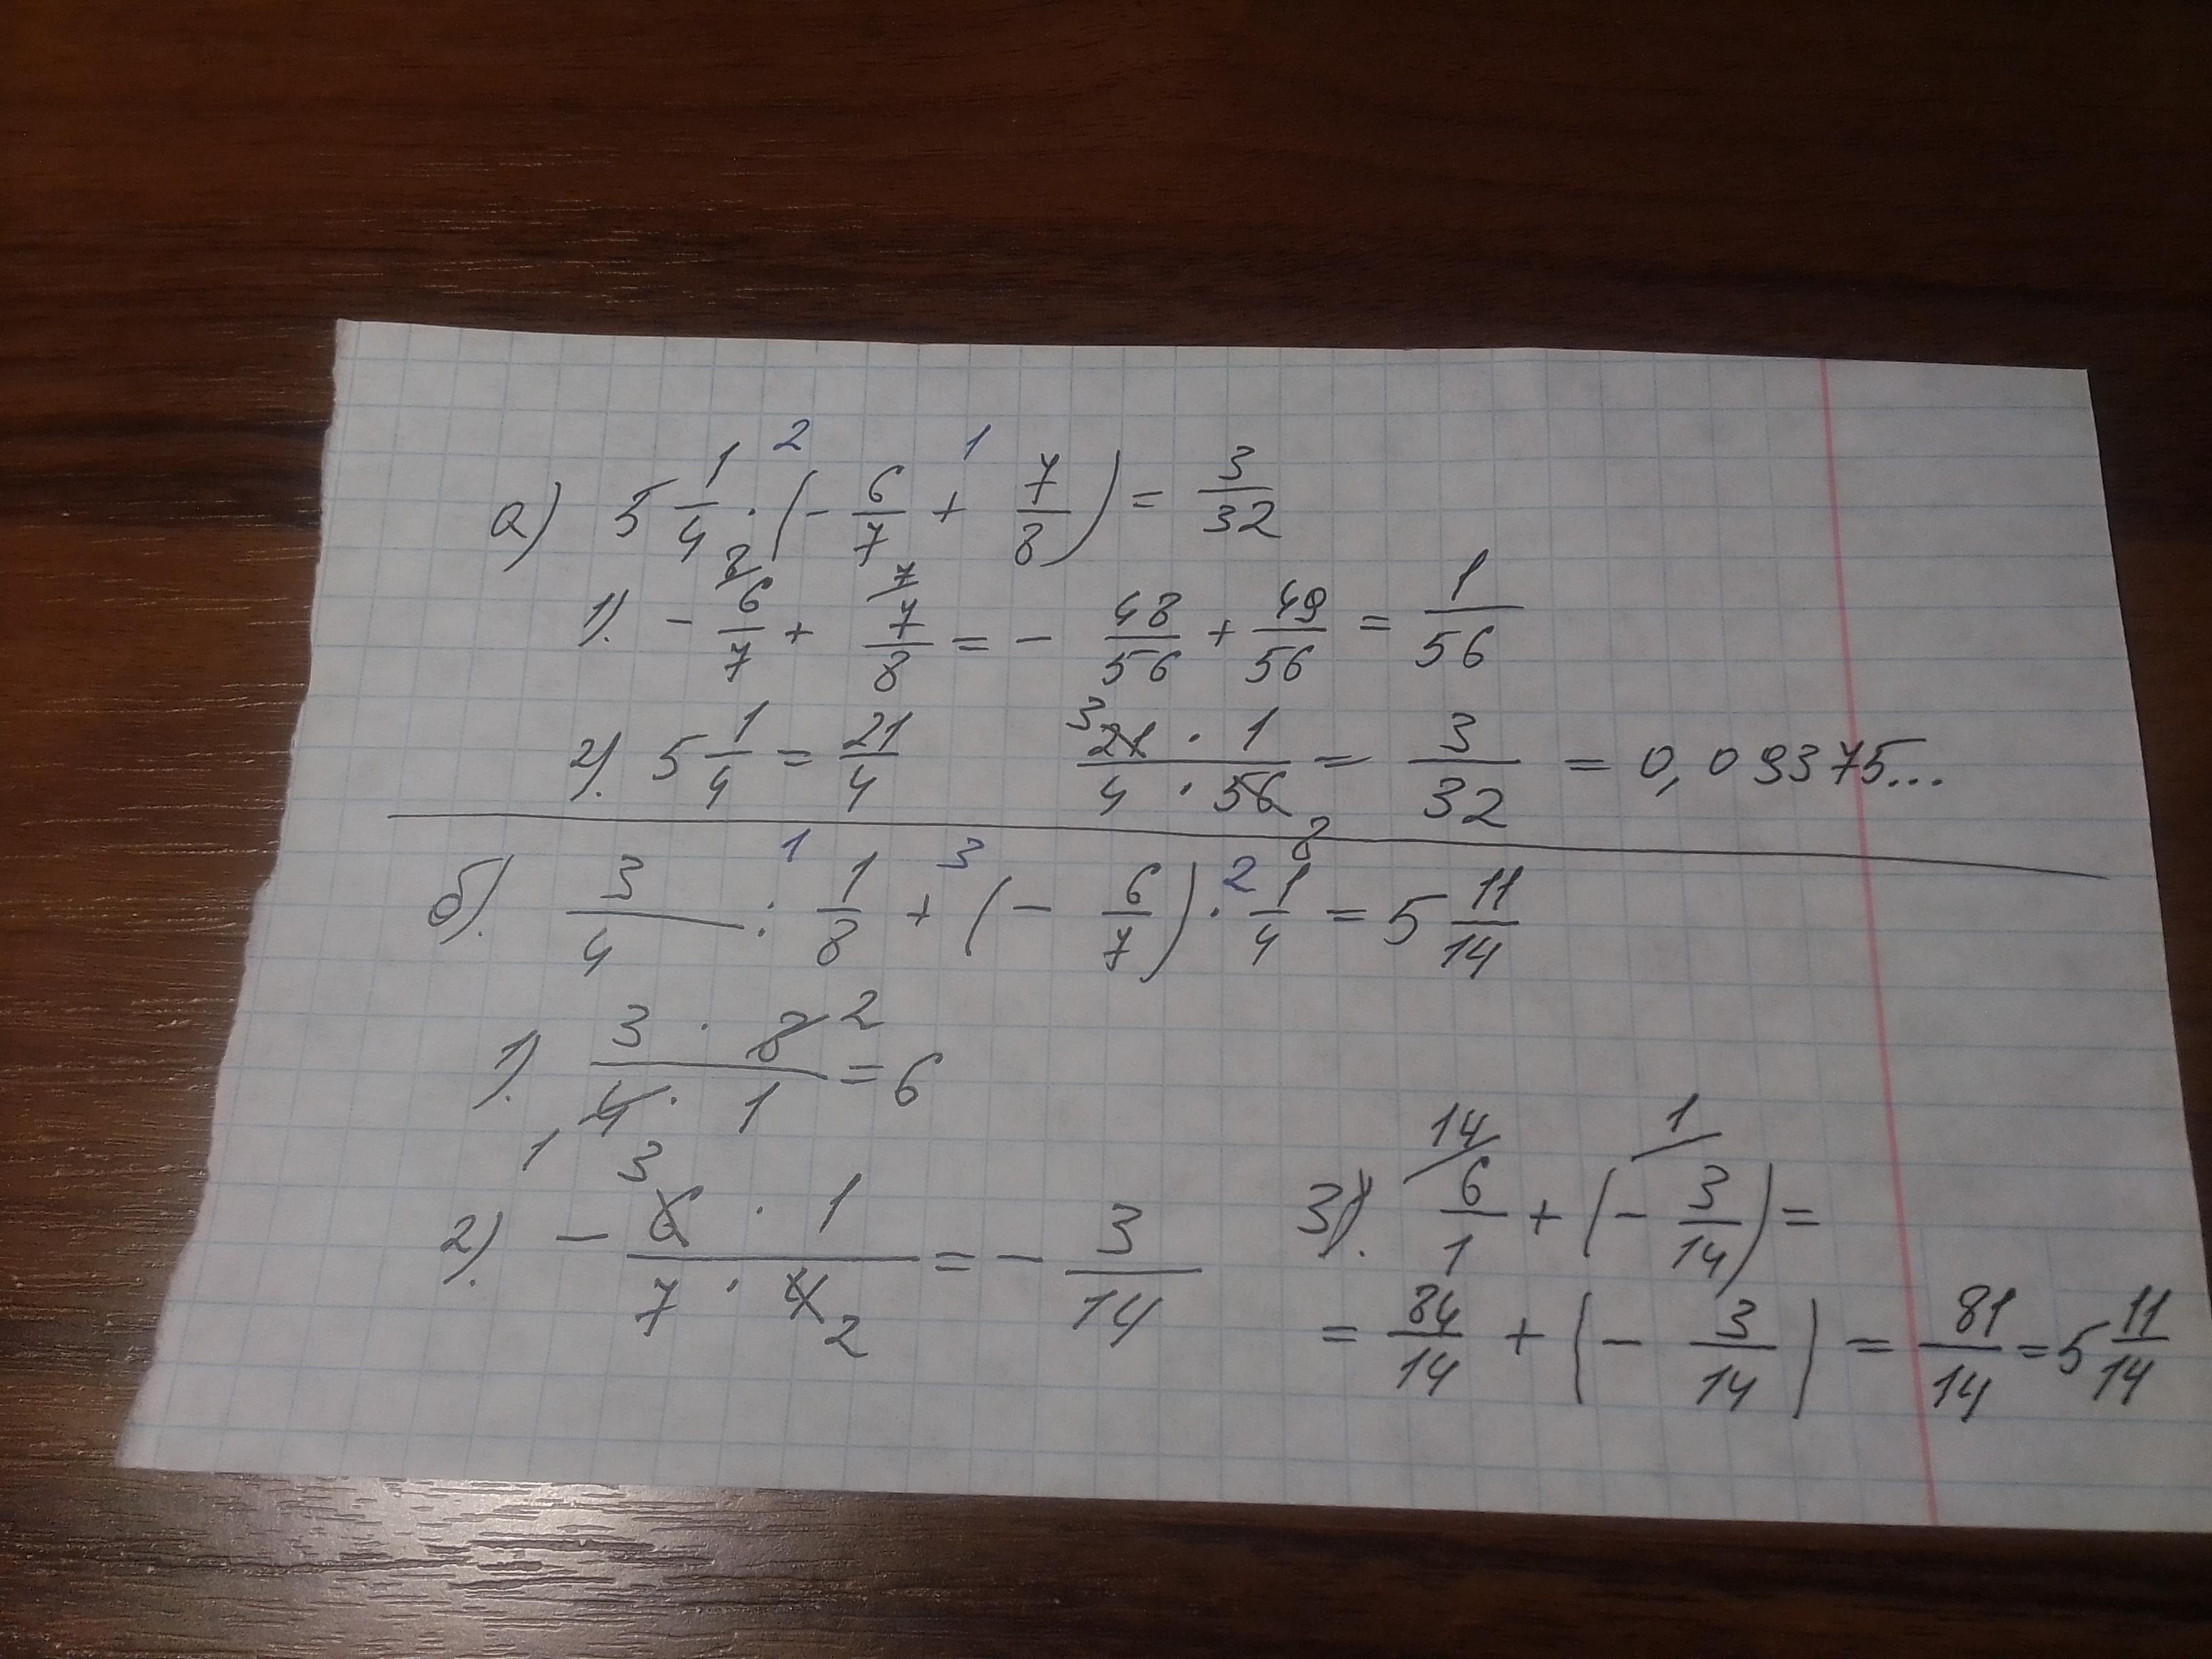 а) 5 1/4 · (- 6/7 + 7/8) = 3/32
1). - 6/7 + 7/8 = - 48/56 + 49/56 = 1/56
2). 5 1/4 = 21/4   21 · 1 / 4 · 56 = 3/32 = 0,09375...
б). 3/4 : 1/8 + (- 6/7) · 1/4 = 5 11/14
1). 3 · 8 / 4 · 1 = 6
2). - 6 · 1 / 7 · 4 = - 3/14
3). 6/1 + (- 3/14) =
= 84/14 + (- 3/14) = 81/14 = 5 11/14